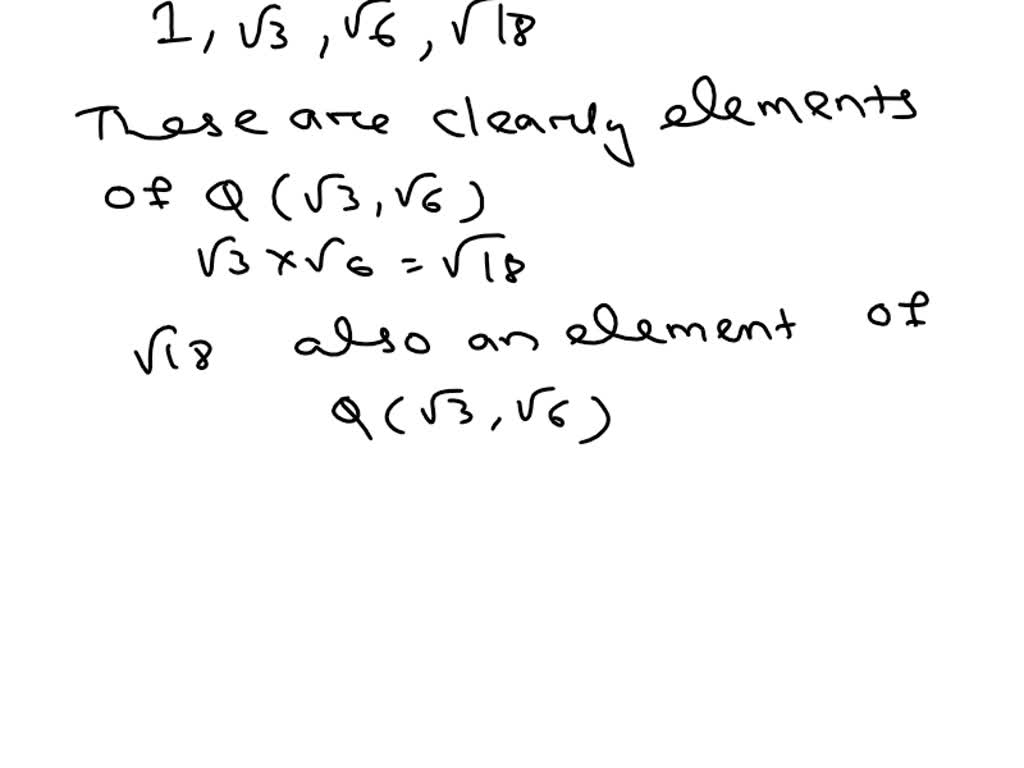 1, √3, √6, √18
These are clearly elements
of Q (√3, √6)
√3 × √6 = √18
√18 also an element of
Q (√3, √6)